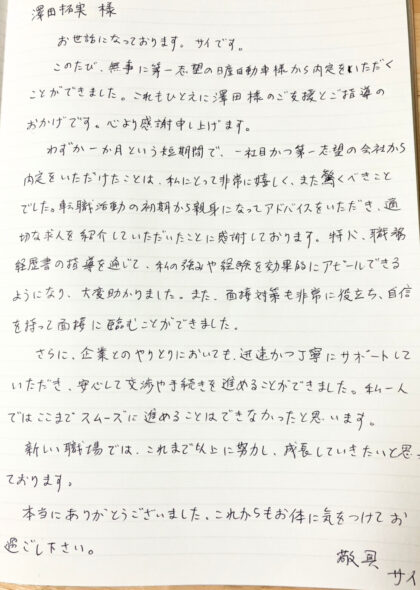 澤田拓実 様
お世話になっております。サイです。
このたび、無事に第一志望の日産自動車様から内定をいただく
ことができました。これもひとえに澤田様のご支援とご指導の
おかげです。心より感謝申し上げます。
わずか一か月という短期間で、一社目かつ第一志望の会社から
内定をいただけたことは、私にとって非常に嬉しく、また驚くべきこと
でした。転職活動の初期から親身になってアドバイスをいただき、適
切な求人を紹介していただいたことに感謝しております。特に、職務
経歴書の指導を通じて、私の強みや経験を効果的にアピールできる
ようになり、大変助かりました。また、面接対策も非常に役立ち、自信
を持って面接に臨むことができました。
さらに、企業とのやりとりにおいても、迅速かつ丁寧にサポートして
いただき、安心して交渉や手続きを進めることができました。私一人
ではここまでスムーズに進めることはできなかったと思います。
新しい職場では、これまで以上に努力し、成長していきたいと思っ
ております。
本当にありがとうございました。これからもお体に気をつけてお
過ごし下さい。
敬具
サイ